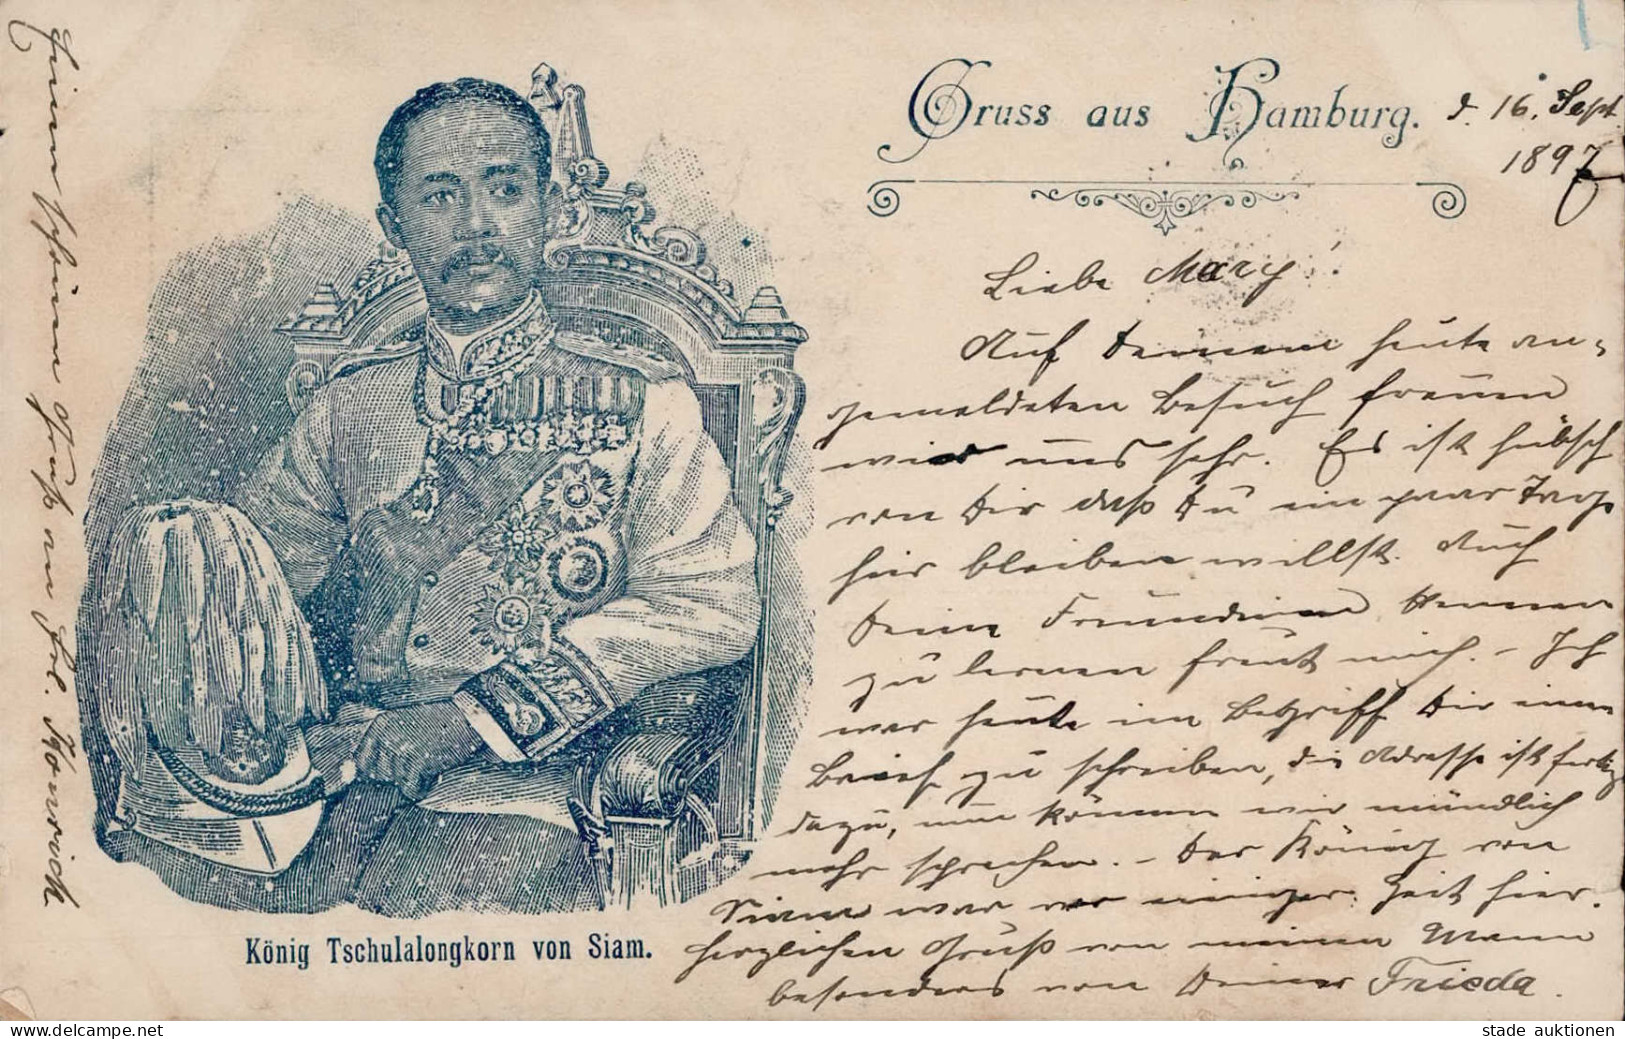 Gruss aus Hamburg. d. 16. Sept.
1897
Liebe Mary!
Auf Deinem heute an-
gemeldeten Besuch freuen
wir uns sehr. Es ist hübsch
von Dir daß Du ein paar Tage
hier bleiben willst. Auch
Deine Freundin kennen
zu lernen freut mich. – Ich
war heute im Begriff Dir einen
Brief zu schreiben, die Adresse ist fertig
dazu, nun können wir mündlich
mehr sprechen. – Der König von
Siam war vor einiger Zeit hier.
Herzlichen Gruß von meinem Mann
besonders von Deiner Frieda.
Einen schönen Gruß an Frl.
König Tschulalongkorn von Siam.
www.delcampe.net
stade auktionen